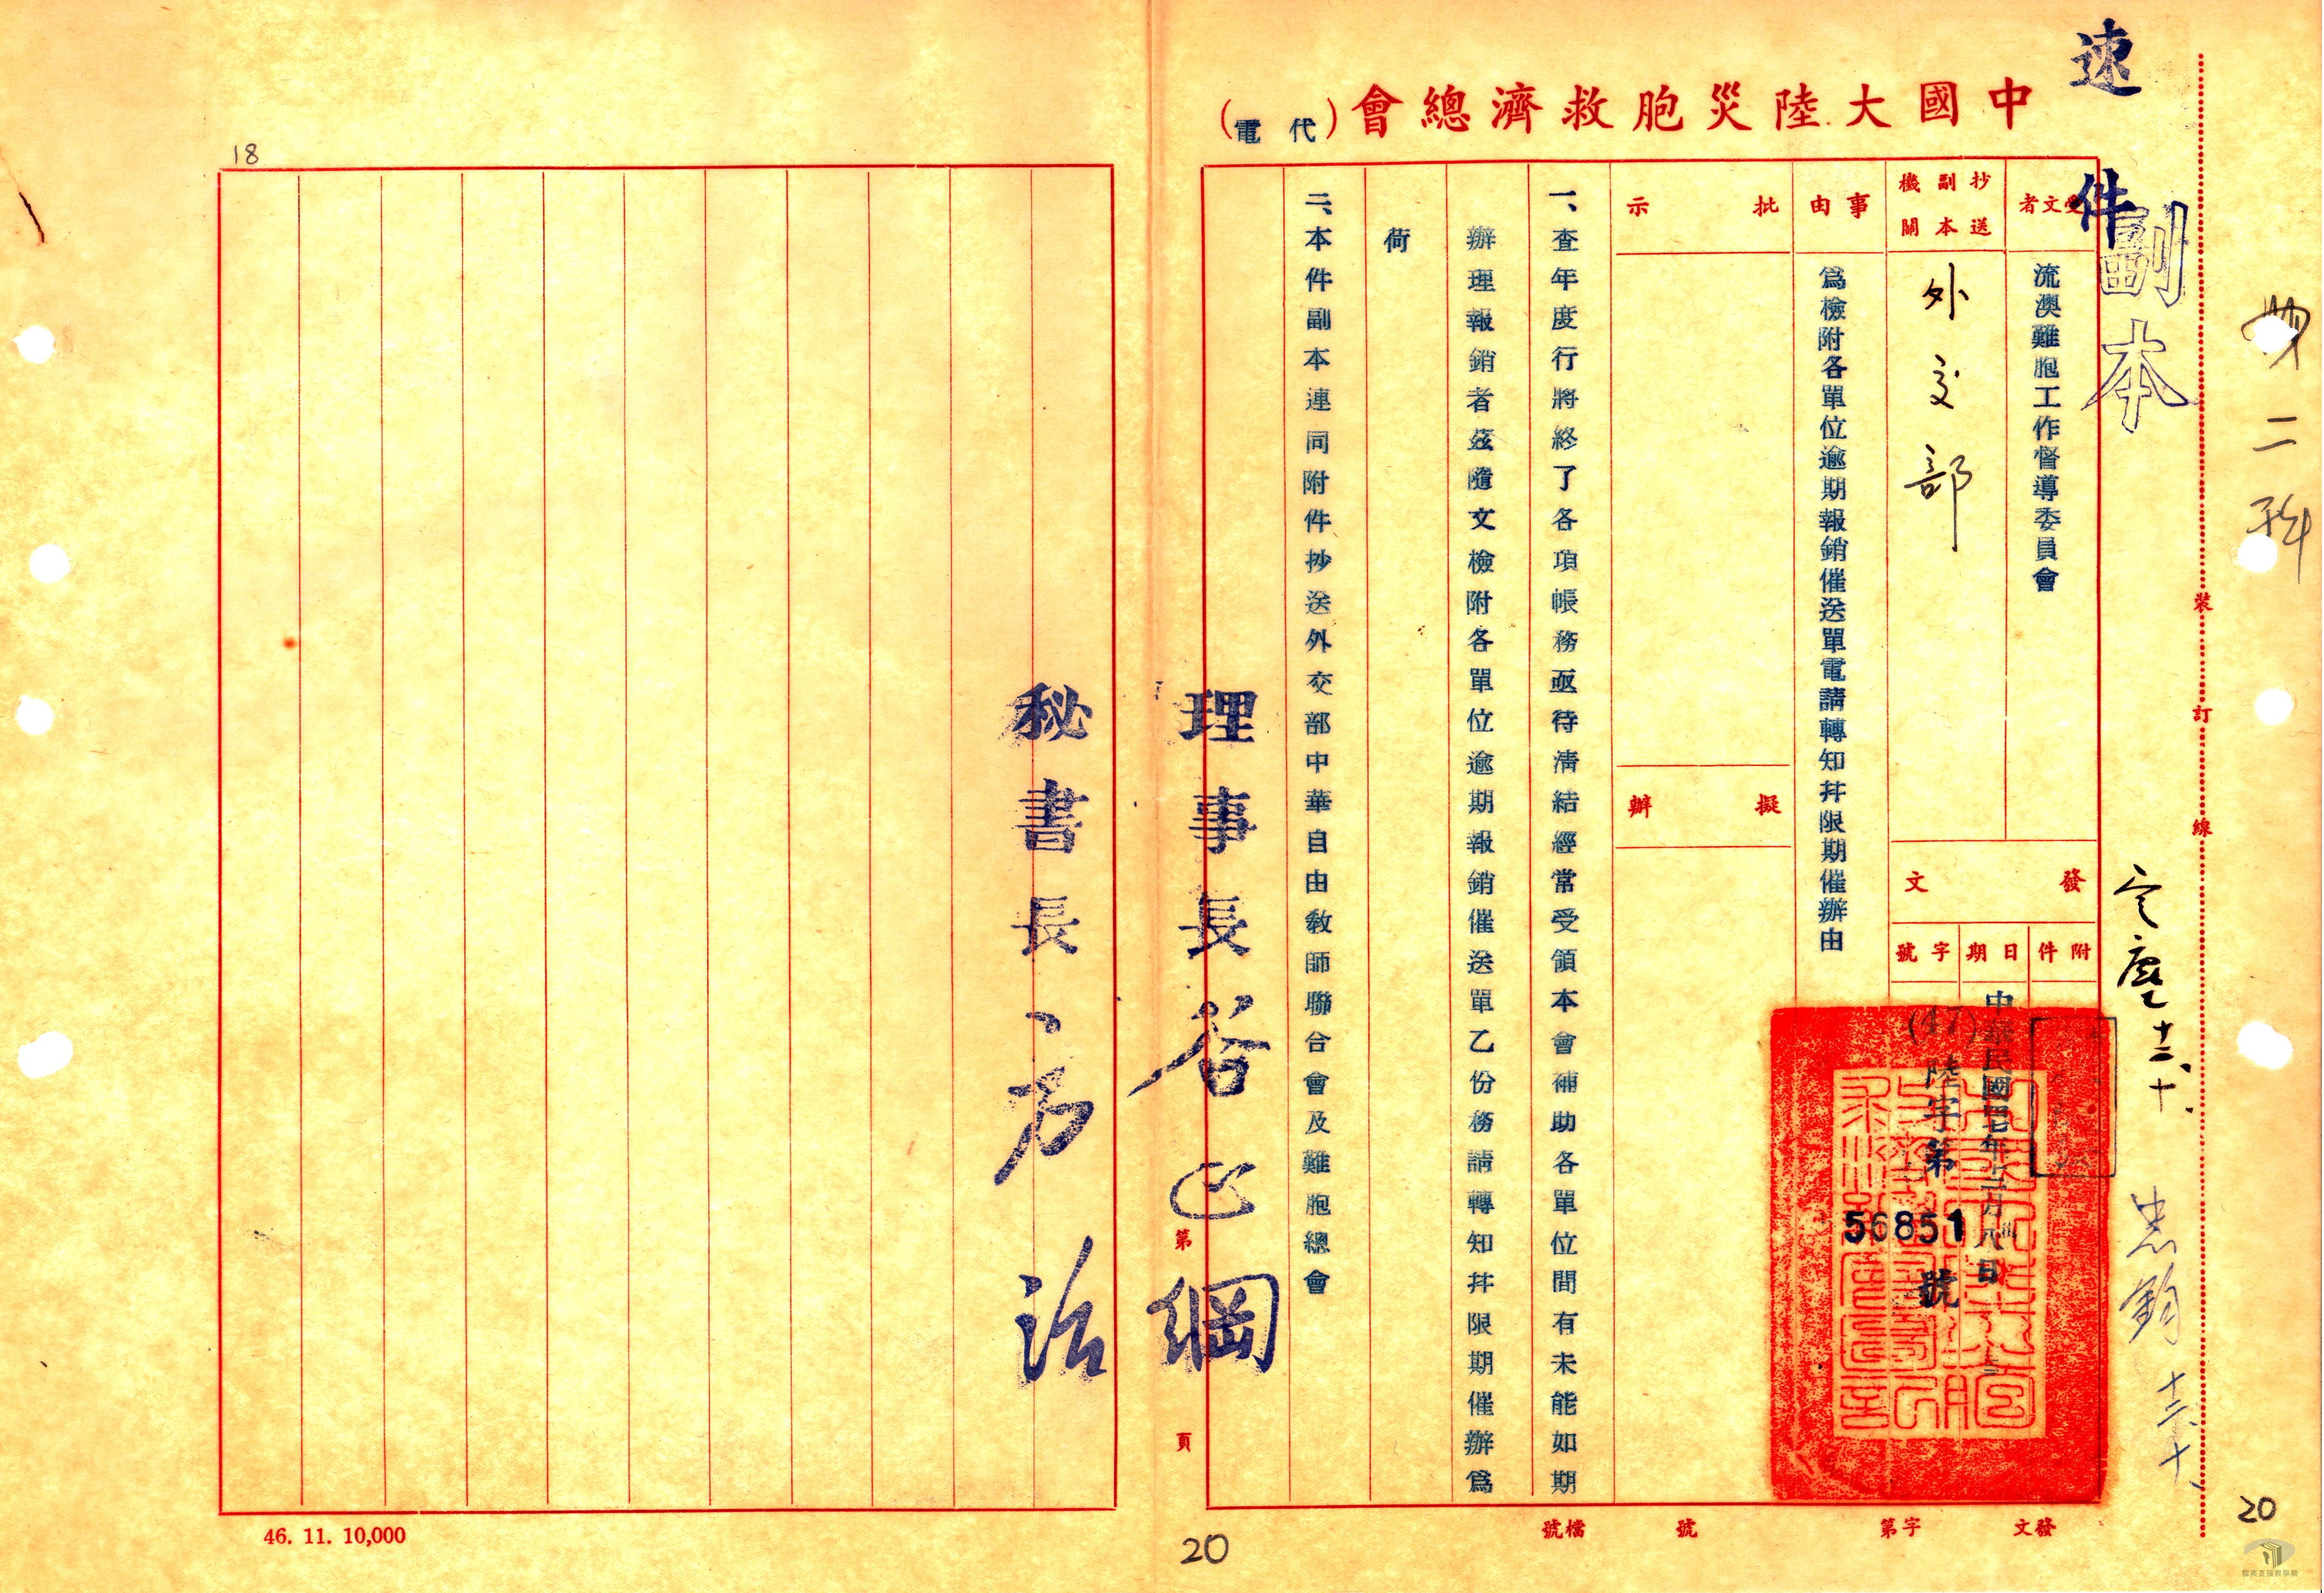 速件
副本
中國大陸災胞救濟總會(代電)
受文者
流澳難胞工作督導委員會
抄送副本機關
外交部
發文
附件
日期
中華民國四七年十二月八日
字號
(47)陸字第56851號
事由
為檢附各單位逾期報銷催送單電請轉知并限期催辦由
批示
擬辦
一、查年度行將終了各項帳務亟待清結經常受領本會補助各單位間有未能如期
辦理報銷者茲隨文檢附各單位逾期報銷催送單乙份務請轉知并限期催辦為
荷
二、本件副本連同附件抄送外交部中華自由教師聯合會及難胞總會
理事長谷正綱
秘書長方治
第 頁
裝訂線
二科
十二、十、
十二、十、
發文 字第 號
檔號
46. 11. 10,000
18
20
20
檔案支援教學網